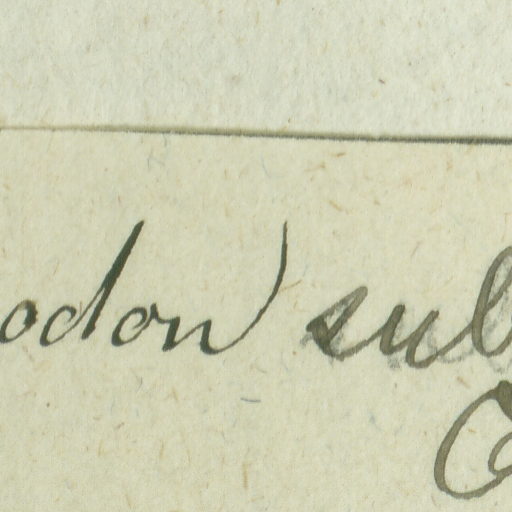 odon sub